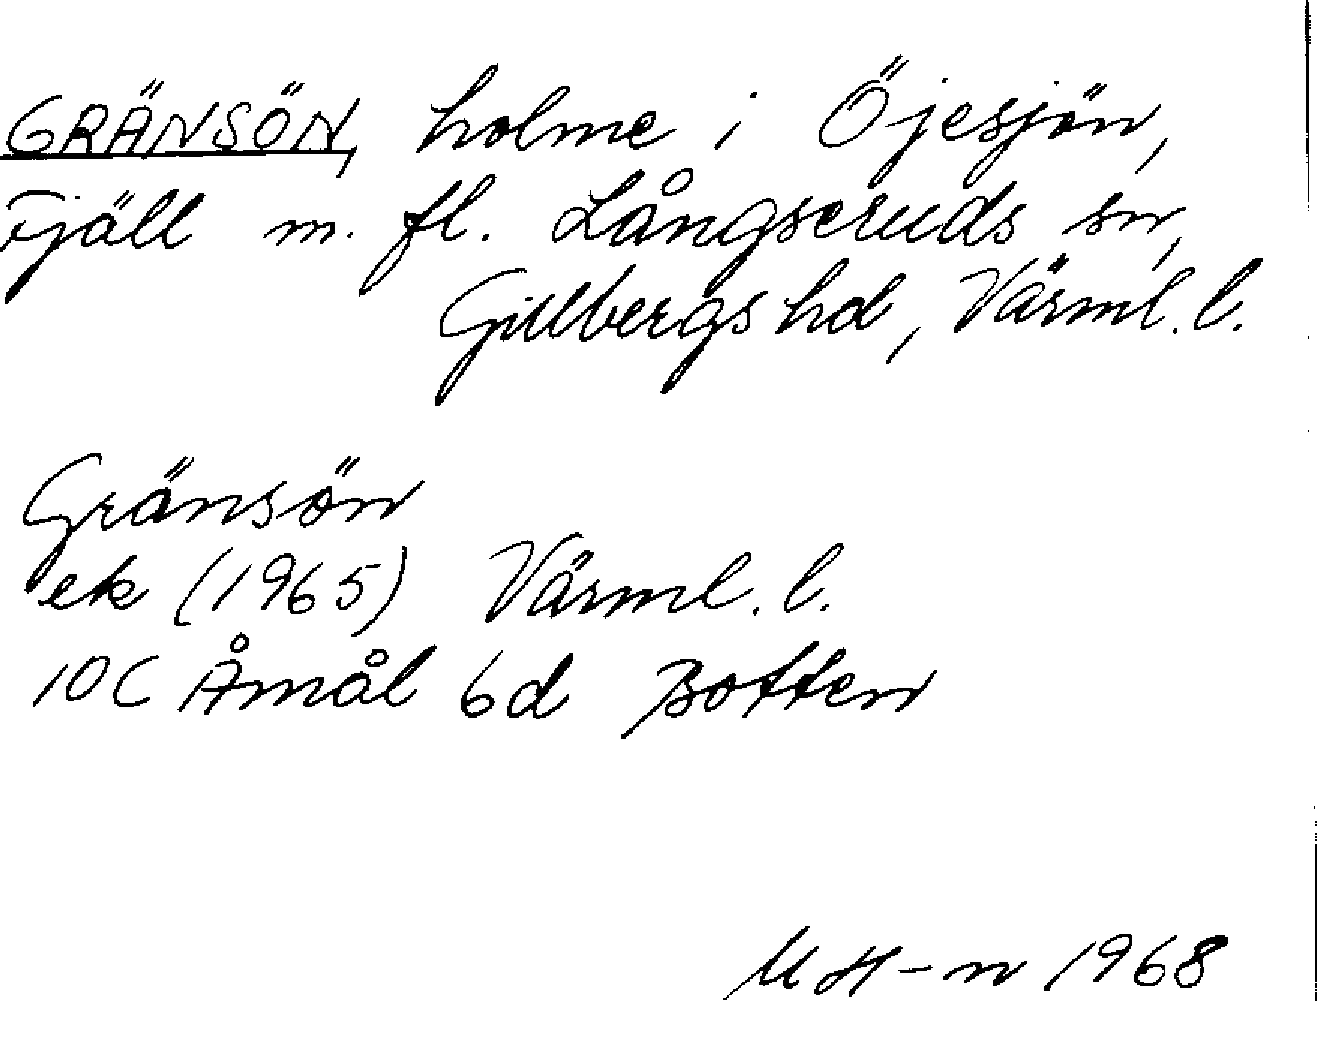 GRÄNSÖN, holme i Öjesjön,
Fjäll m. fl. Långseruds sn,
Gillbergs hd, Värml. l.
Gränsön
ek (1965) Värml. l.
10C Åmål 6d Botten
MH-n 1968